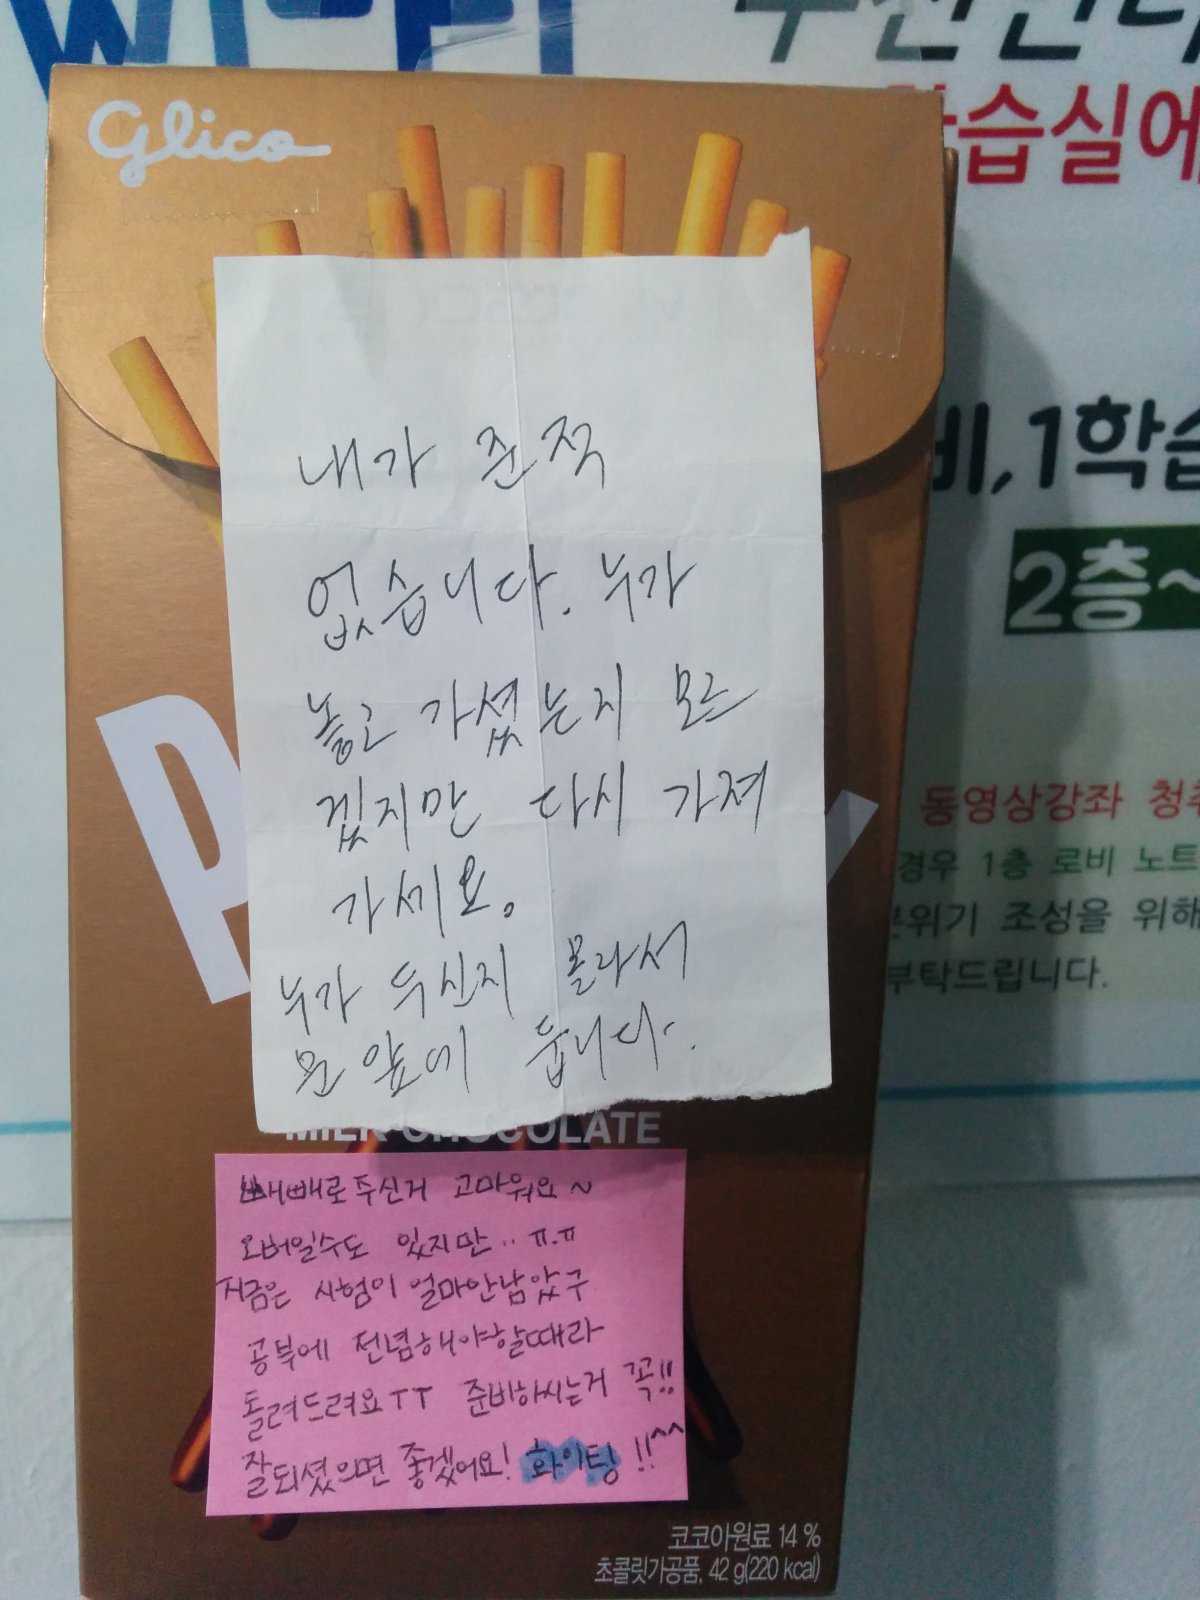 Wi-Fi
습실에
Glico
내가 준적
없습니다. 누가
놓고 가셨는지 모르
겠지만 다시 가져
가세요.
누가 두신지 몰라서
문앞에 둡니다.
비,1학습
2층~
동영상강좌 청
경우 1층 로비 노트
분위기 조성을 위해
부탁드립니다.
P
MILK CHOCOLATE
빼빼로주신거 고마워요~
오버일수도 있지만.. ㅠ.ㅠ
지금은 시험이 얼마안남았구
공부에 전념해야할때라
돌려드려요TT 준비하시는거 꼭!!
잘되셨으면 좋겠어요! 화이팅!!^^
코코아원료 14 %
초콜릿가공품, 42 g(220 kcal)